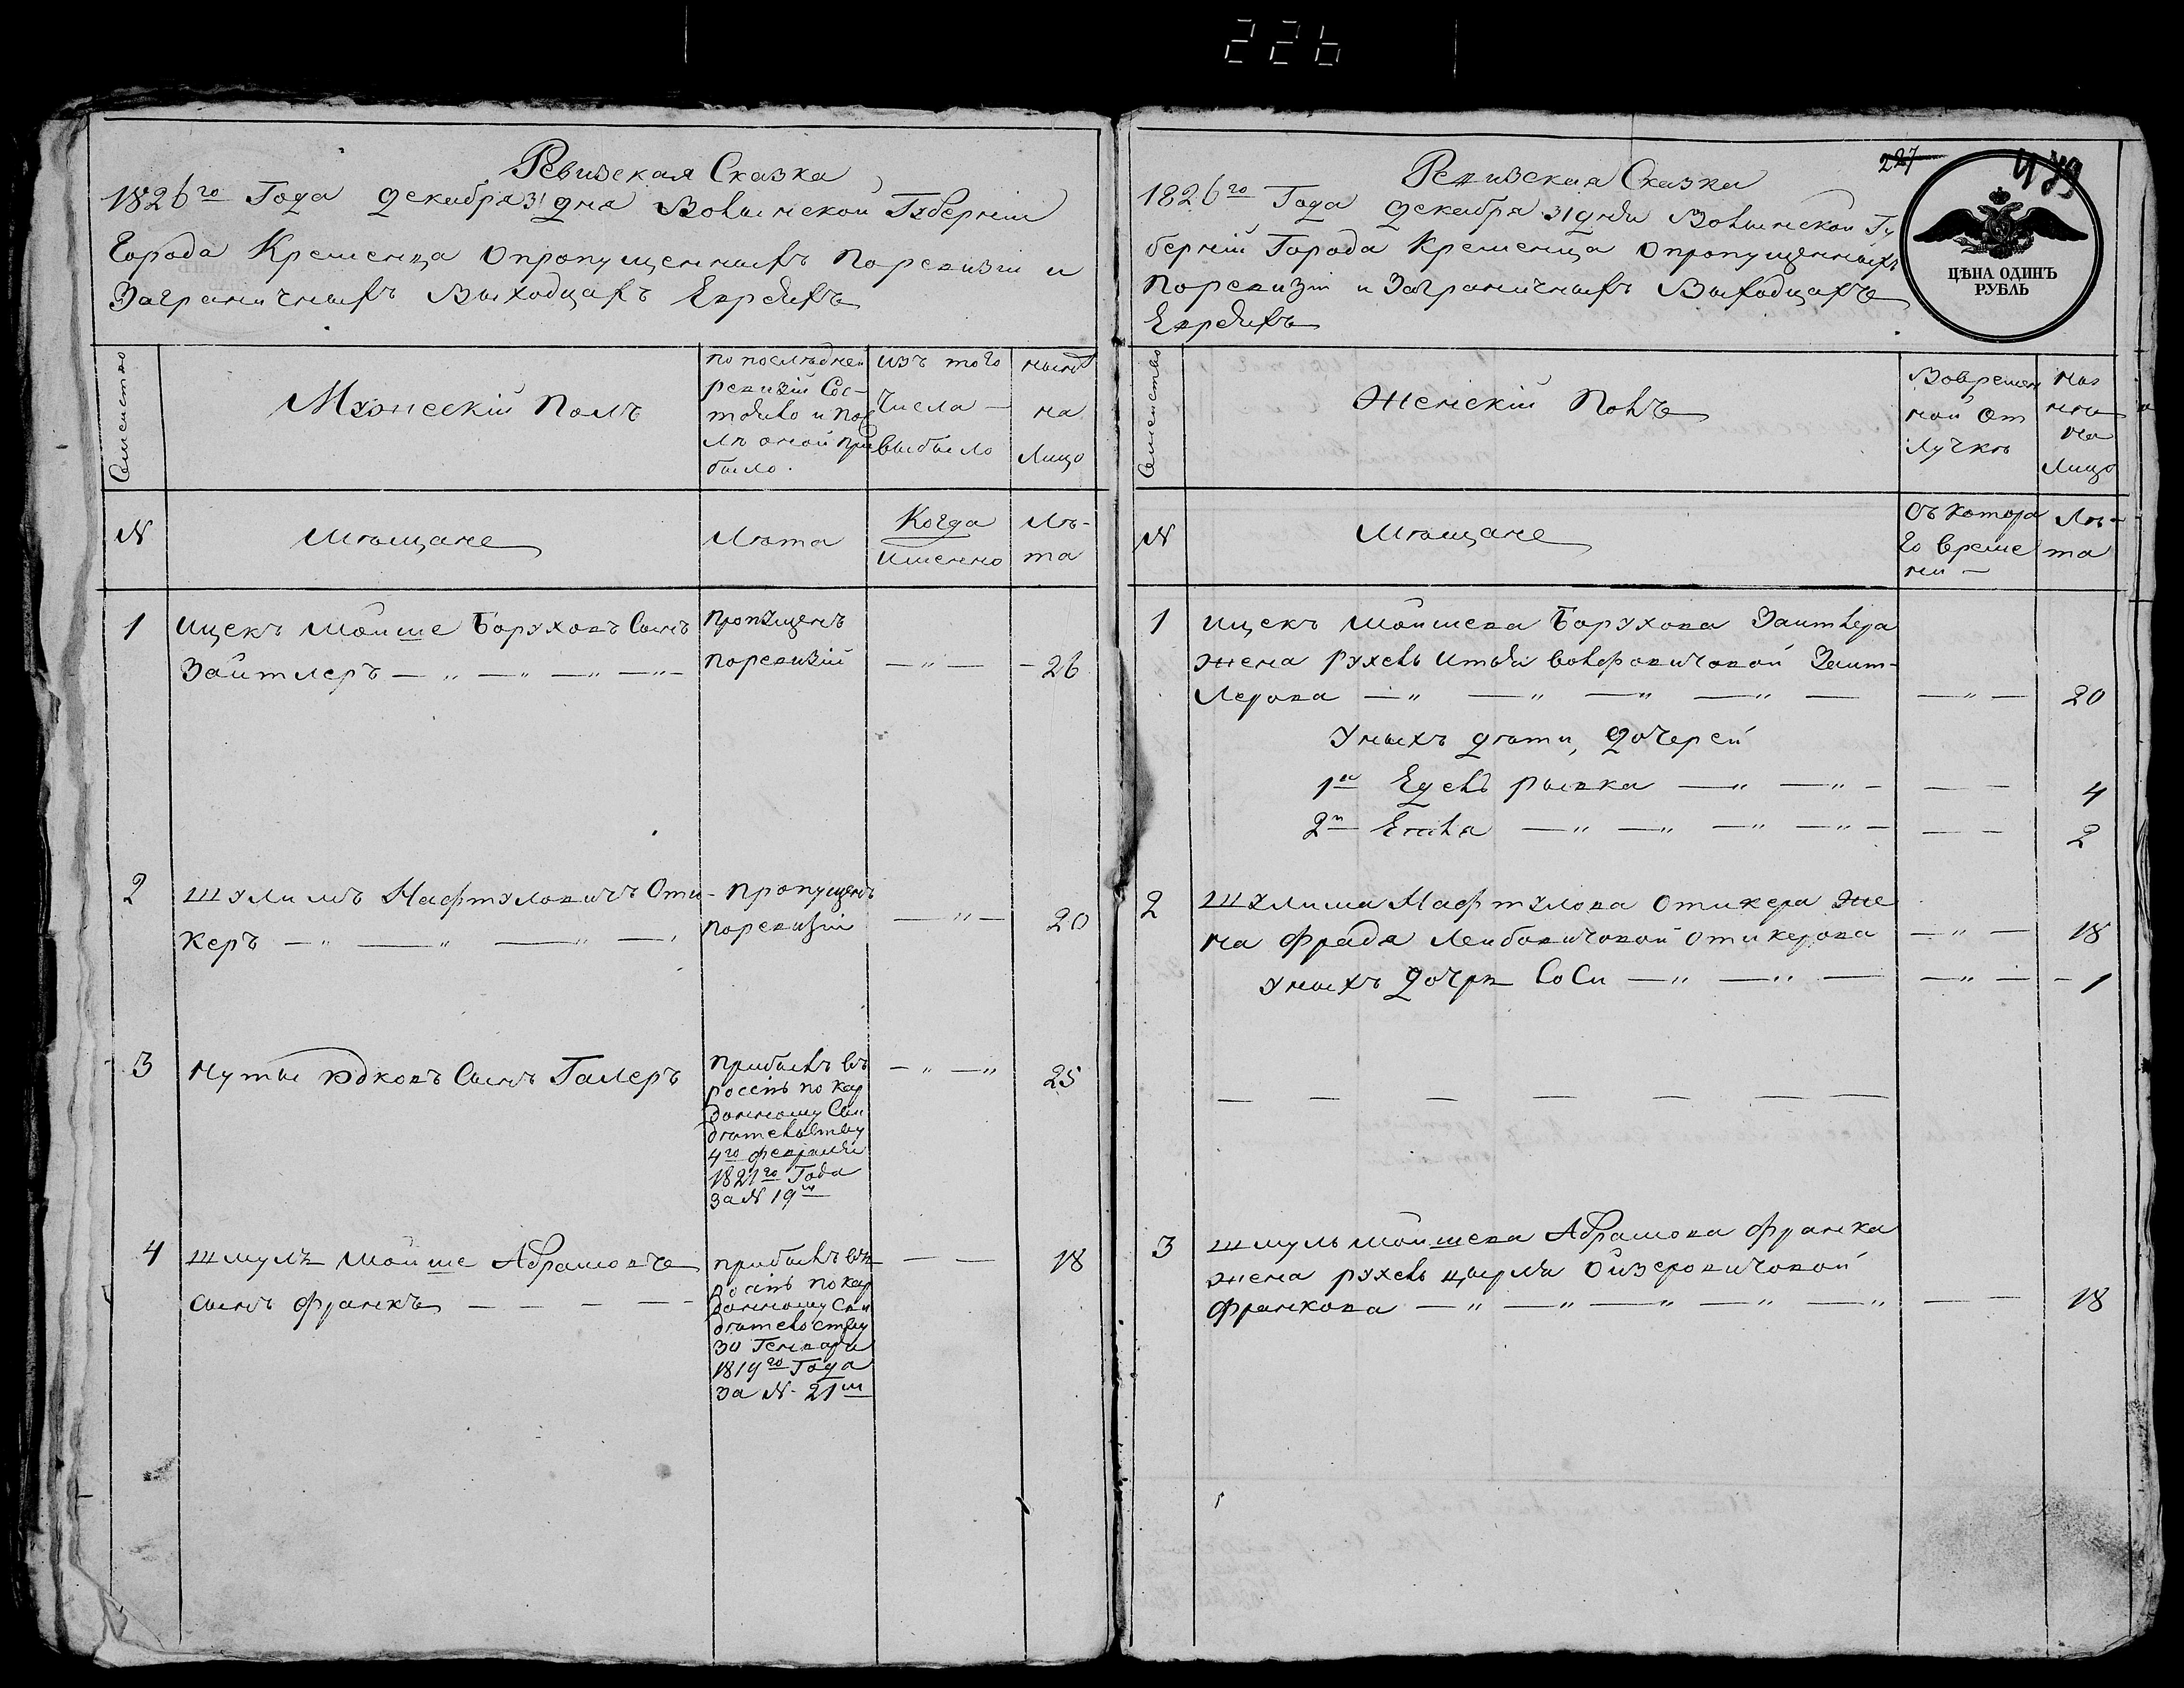 226
Ревизская Сказка
1826го Года декабря 31 дня Волынской Губерніи
Города Кременца О пропущенныхъ По ревизіи и
Заграничныхъ Выходцахъ Евреяхъ
Семейство
Мужескій Полъ
по послѣдней
ревизіи Сос-
тояло и пос
лѣ оной при
было.
изъ того
числа —
выбыло
нынѣ
на
лицо
N
Мѣщане
Лѣта
Когда
именно
Лѣ-
та
1
Ицекъ Мойше Боруховъ Сынъ
Зайтлеръ — „ — „ — „ — „ —
пропущенъ
по ревизіи
— „ —
26
2
Шулимъ Нафтуловичъ Оти-
керъ — „ — „ — „ —
пропущенъ
по ревизіи
— „ —
20
3
Нуты Юдковъ Сынъ Галеръ
прибылъ въ
росеію по кар
донному Сви
дѣтельству
4го февраля
1821го Года
за N 19м
— „ — „
25
4
Шмуль Мойше Абрамовъ
сынъ Франкъ — — — —
прибылъ въ
росеію по кар
донному Сви
дѣтельству
30 Генваря
1819го Года
за N. 21м
— —
18
227
479
ЦѢНА ОДИНЪ
РУБЛЬ
Ревизская Сказка
1826го Года декабря 31 дня Волынской Гу
берніи Города Кременца О пропущенныхъ
По ревизіи и Заграничныхъ Выходцахъ
Евреяхъ
Семейство
Женскій Полъ
Во времен
ной от
лучкѣ
ны
нѣ
на
лицо
N
Мѣщане
Съ котора
го време
ни —
Лѣ-
та
1
Ицекъ Мойшева Борухова Зайтлера
жена Рухель Итья Вольфовичовой Зайт-
лерова — „ — „ — „ — „ —
— „ —
20
У ныхъ дѣти, дочерей
1я Едель рывка — „ — „ —
— —
4
2я — „ — „ — „ — „ —
— —
2
2
Шулима Нафтулова Отикера же
на Фрада Лейбовичовой Отикерова
— „ —
18
У ныхъ дочря Соси — „ — „ —
— „ —
1
— — — — — — —
3
Шмуль Мойшева Абрамова Франка
жена Рухель Цырля Ойзеровичовой
Франкова — „ — „ — „ — „ — „
— —
18